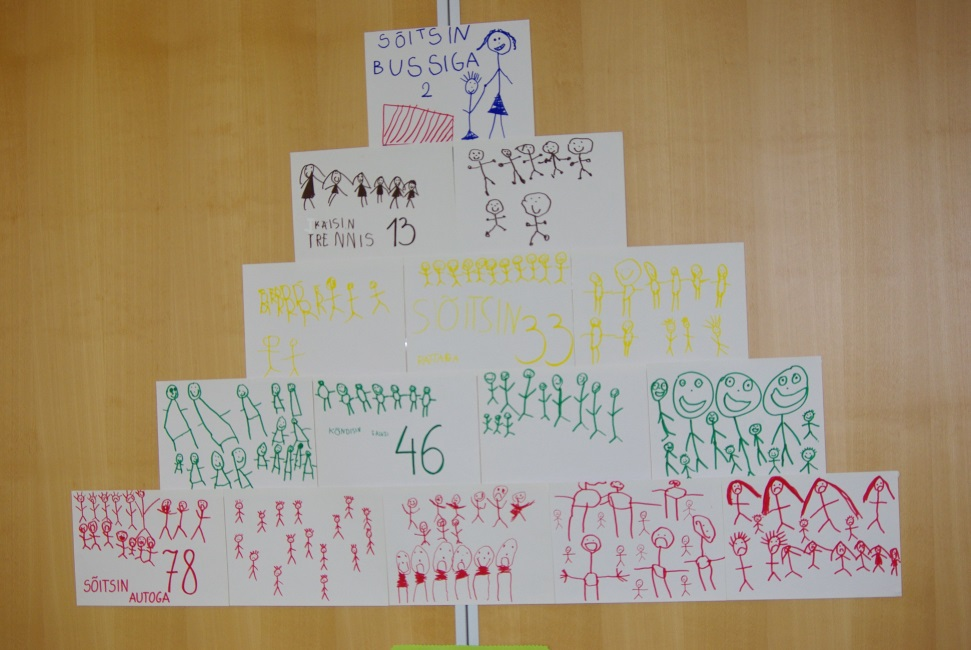 SÕITSIN
BUSSIGA
2
KÄISIN
TRENNIS 13
SÕITSIN 33
46
SÕITSIN 78
AUTOGA